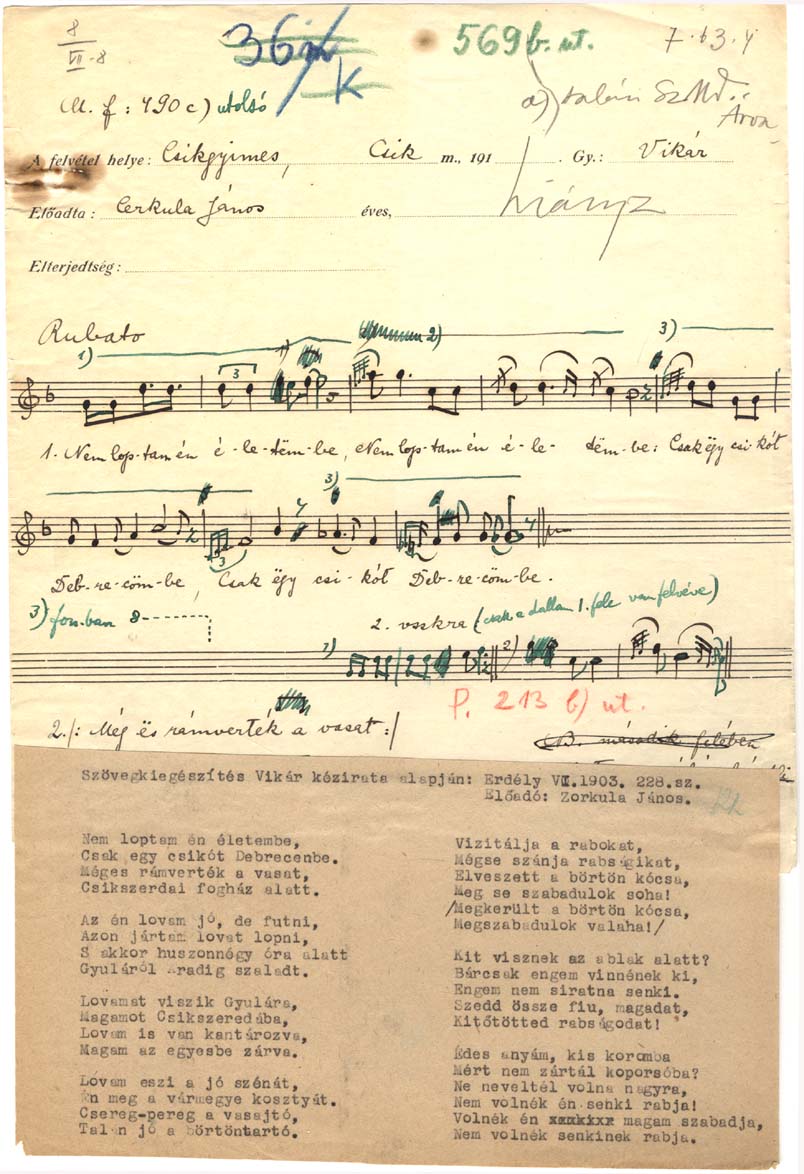 8
VII-8
36
K
569 b. ut.
7
M. f: 490 c) utolsó
a) talán
A felvétel helye: Csikgyimes, Csik m., 191 . Gy.: Vikár
Előadta: Cerkula János éves,
hiányz
Elterjedtség:
Rubato
1) 2) 3)
3
1. Nem lop-tam én é-le-tëm-be, Nem lop-tam én é-le-tëm-be: Csak ëgy csi-kót
3)
3
Deb-re-cöm-be, Csak ëgy csi-kót Deb-re-cöm-be.
3) fon-ban 8
2. vsskra (csak a dallam 1. fele van felvéve)
1) 2)
P. 213 b) ut.
2. /: Még ës rámverték a vasat :/
(B. második felében
Szövegkiegészítés Vikár kézirata alapján: Erdély VII.1903. 228.sz.
Előadó: Zorkula János.
Nem loptam én életembe,
Csak egy csikót Debrecenbe.
Méges rámverték a vasat,
Csikszerdai fogház alatt.
Az én lovam jó, de futni,
Azon jártam lovat lopni,
S akkor huszonnégy óra alatt
Gyuláról Aradig szaladt.
Lovamat viszik Gyulára,
Magamot Csikszeredába,
Lovam is van kantározva,
Magam az egyesbe zárva.
Lovam eszi a jó szénát,
Én meg a vármegye kosztyát.
Csereg-pereg a vasajtó,
Talán jő a börtöntartó.
Vizitálja a rabokat,
Mégse szánja rabságikat,
Elveszett a börtön kócsa,
Meg se szabadulok soha!
/Megkerült a börtön kócsa,
Megszabadulok valaha!/
Kit visznek az ablak alatt?
Bárcsak engem vinnének ki,
Engem nem siratna senki.
Szedd össze fiu, magadat,
Kitőtötted rabságodat!
Édes anyám, kis koromba
Mért nem zártál koporsóba?
Ne neveltél volna nagyra,
Nem volnék én senki rabja!
Volnék én magam szabadja,
Nem volnék senkinek rabja.